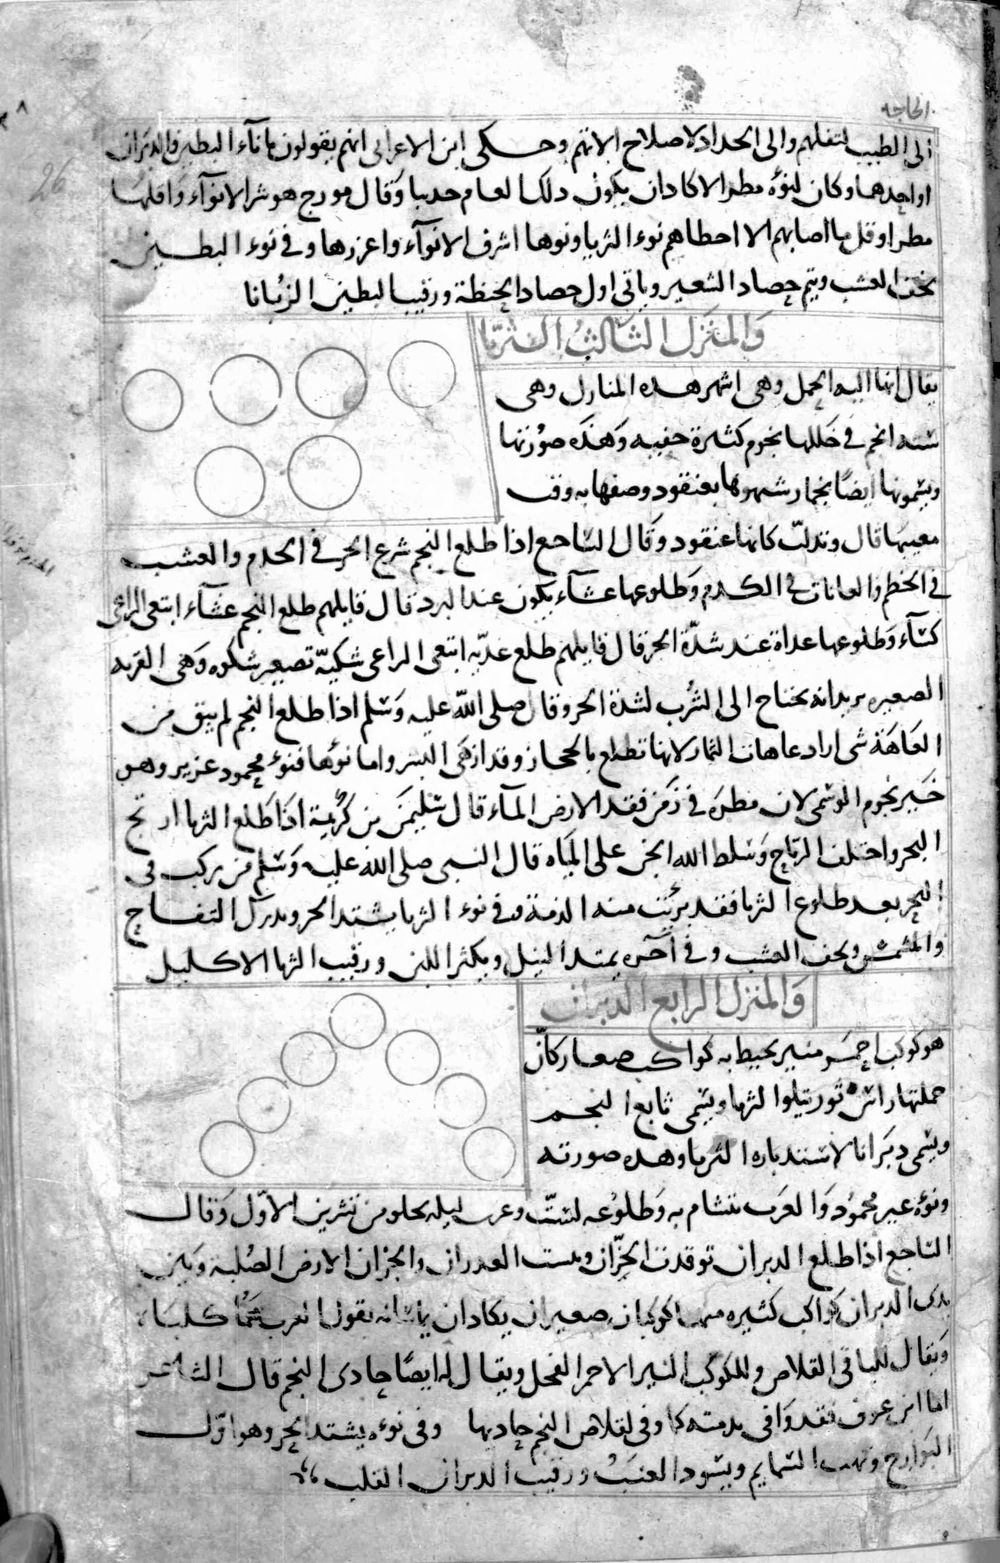 الحاجه
الى الطبيب لثقلهم والى الحداد لاصلاح الاتهم وحكى ابن الاعرابي انهم يقولون ما ناء البطين والدبران
او احدهما وكان لنوئه مطر الا كاد ان يكون ذلك العام جدبا وقال مورج هو شر الانواء واقلها
مطرا وقل ما اصابهم الا اخطاهم نوء الثريا ونوها اشرف الانواء واعزرها وفي نوء البطين
يجف العشب ويتم حصاد الشعير وياتي اول حصاد الحنطة ورقيب البطين الزبانا
والمنزل الثالث الثريا
يقال انها الية الحمل وهي اشهر هذه المنازل وهي
ستة انجم في خللها نجوم كثيرة خفيه وهذه صورتها
ويسمونها ايضا نجما وشبهوها بعنقود وصفها به وقت
مغيبها قال وتدلت كانها عنقود وقال الساجع اذا طلع النجم شرع الحر في الحدم والعشب
في الحطم والعانات في الكدم وطلوعها عشاء يكون عند البرد قال قايلهم طلع النجم عشاء ابتغى الراعي
كساء وطلوعها غداة عند شدة الحر قال قايلهم طلع غدية ابتغى الراعي شكية تصغير شكوه وهي القربه
الصغيره يريد انه يحتاج الى الشرب لشدة الحر وقال صلى الله عليه وسلم اذا طلع النجم لم يبق من
العاهة شي اراد عاهات الثمار لانها تطلع بالحجاز وقد ازهى البسر واما نوها فنوء محمود عزير وهو
خير نجوم الوسمي لان مطره في زمن فقد الارض الماء قال سليمن من كريمة اذا طلع الثريا ارتج
البحر واختلف الرياح وسلط الله الجن على المياه قال النبي صلى الله عليه وسلم من ركب في
البحر بعد طلوع الثريا فقد برئت منه الذمة وفي نوء الثريا يشتد الحر ويدرك التفاح
والمشمش ويجف العشب وفي آخره يمتد النيل ويكثر اللبن ورقيب الثريا الاكليل
والمنزل الرابع الدبران
هو كوكب احمر منير يحيط به كواكب صغار كان
جملتها راس ثور يتلوا الثريا ويسمى تابع النجم
ويسمى دبرانا لاستدباره الثريا وهذه صورته
ونوءه غير محمود والعرب تتشام به وطلوعه لست وعرب ليله يخلو من تشرين الاول وقال
الساجع اذا طلع الدبران توقدت الحزان ويبست الغدران والحزان الارض الصلبة وبين
يدى الدبران كواكب كثيره منها كوكبان صغيران يكادان يماسانه يقول العرب هما كلباه
ويقال للباقي القلاص وللكوكب النير الاحمر الفحل ويقال له ايضا حادى النجم قال الشاعر
اما ابن عوف فقد وافى بذمته كما وفى لقلاص النجم حاديها وفي نوءه يشتد الحر وهو اول
البوارح وتهب السمايم ويسود العنب ورقيب الدبران القلب